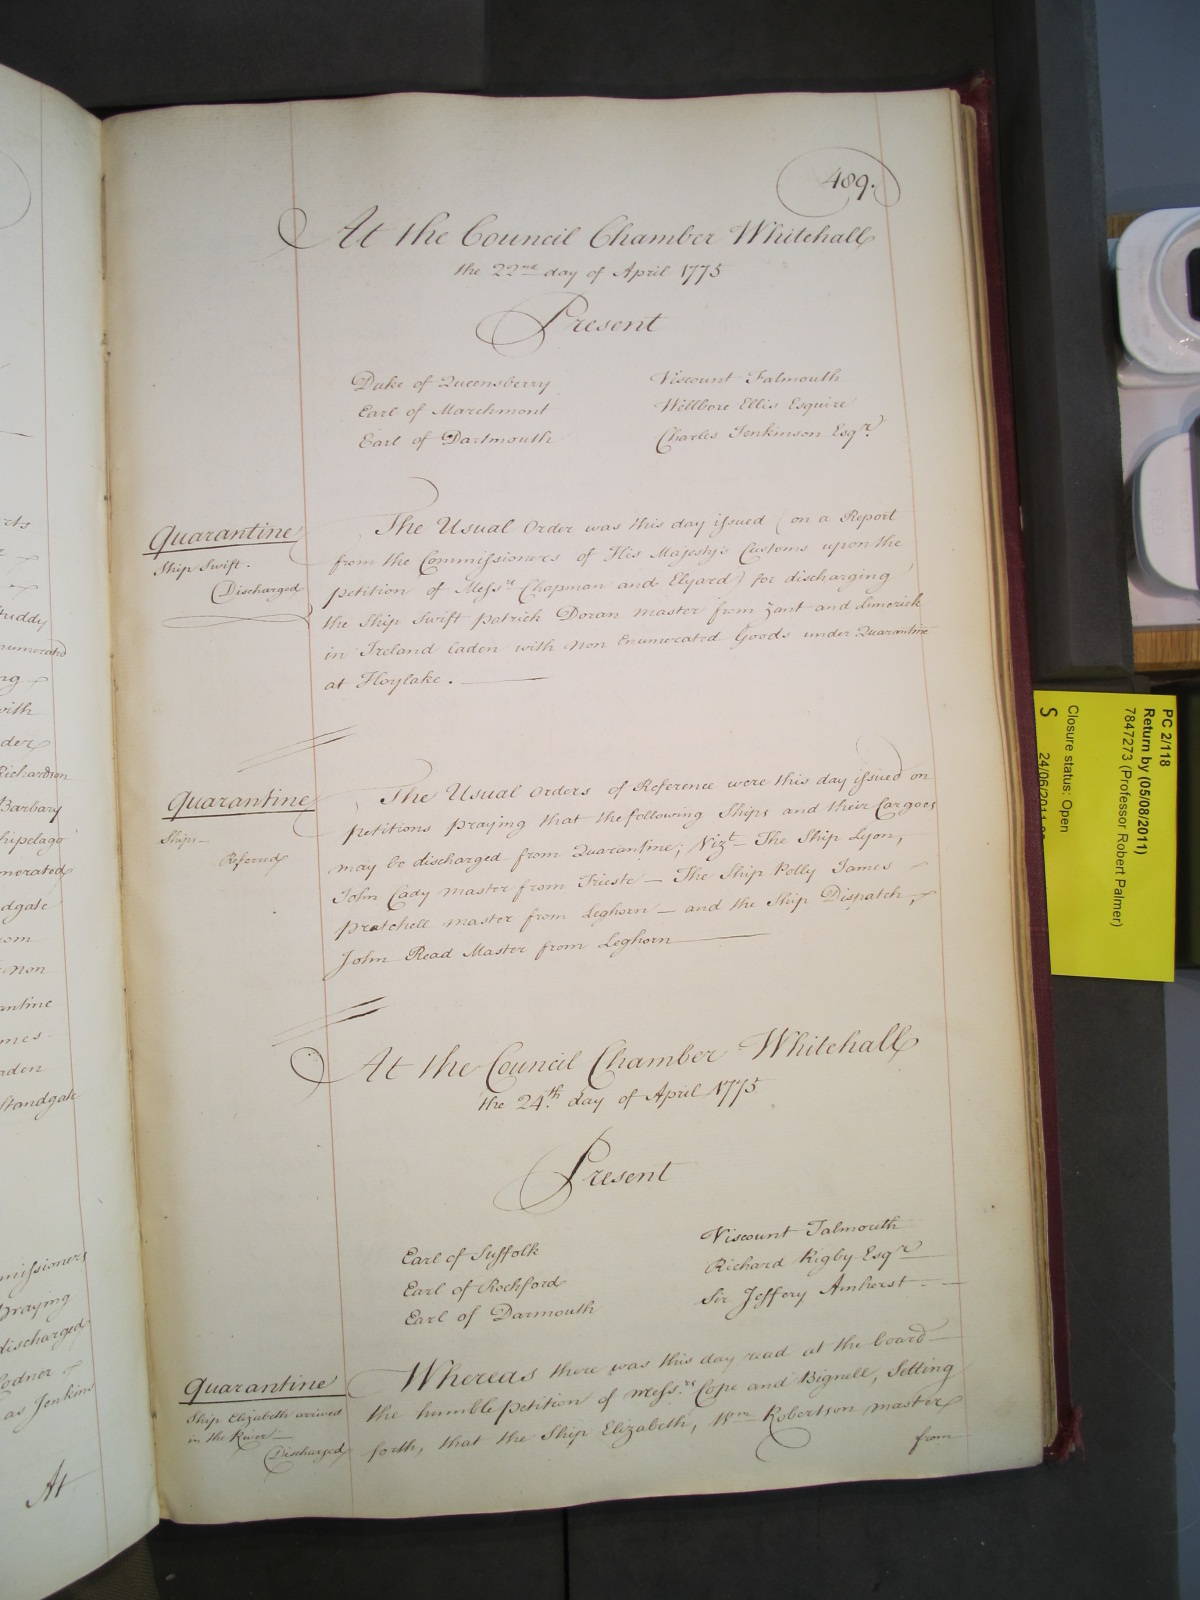 489.
At the Council Chamber Whitehall
the 22nd day of April 1775
Present
Duke of Queensberry
Earl of Marchmont
Earl of Dartmouth
Viscount Falmouth
Wellbore Ellis Esquire
Charles Jenkinson Esqr.
Quarantine
Ship Swift.
Discharged
The Usual Order was this day issued (on a Report
from the Commissioners of His Majestys Customs upon the
petition of Messrs Chapman and Elyard) for discharging
the Ship Swift Patrick Doran Master from Zant and Limerick
in Ireland Laden with Non Enumerated Goods under Quarantine
at Hoylake.
Quarantine
Ships
Referred
The Usual Orders of Reference were this day issued on
petitions praying that the following Ships and their Cargoes
may be discharged from Quarantine; Vizt. The Ship Lyon,
John Cady master from Trieste — The Ship Polly James
Pratchell master from Leghorn — and the Ship Dispatch,
John Read Master from Leghorn
At the Council Chamber Whitehall
the 24th. day of April 1775
Present
Earl of Suffolk
Earl of Rochford
Earl of Darmouth
Viscount Falmouth
Richard Rigby Esqr
Sir Jeffery Amherst
Quarantine
Ship Elizabeth arrived
in the River
Discharged
Whereas there was this day read at the board
the humble petition of Messrs. Cope and Bignell, Setting
forth, that the Ship Elizabeth, Wm Robertson master
from
rts
uddy
numerated
ng
with
der
Richardson
Barbary
hipelago
merated
dgate
om
non
antine
mes
aden
Standgate
missioners
praying
discharged
odner
as Jenkins
At
PC 2/118
Return by (05/08/2011)
7847273 (Professor Robert Palmer)
Closure status: Open
S 24/06/2011